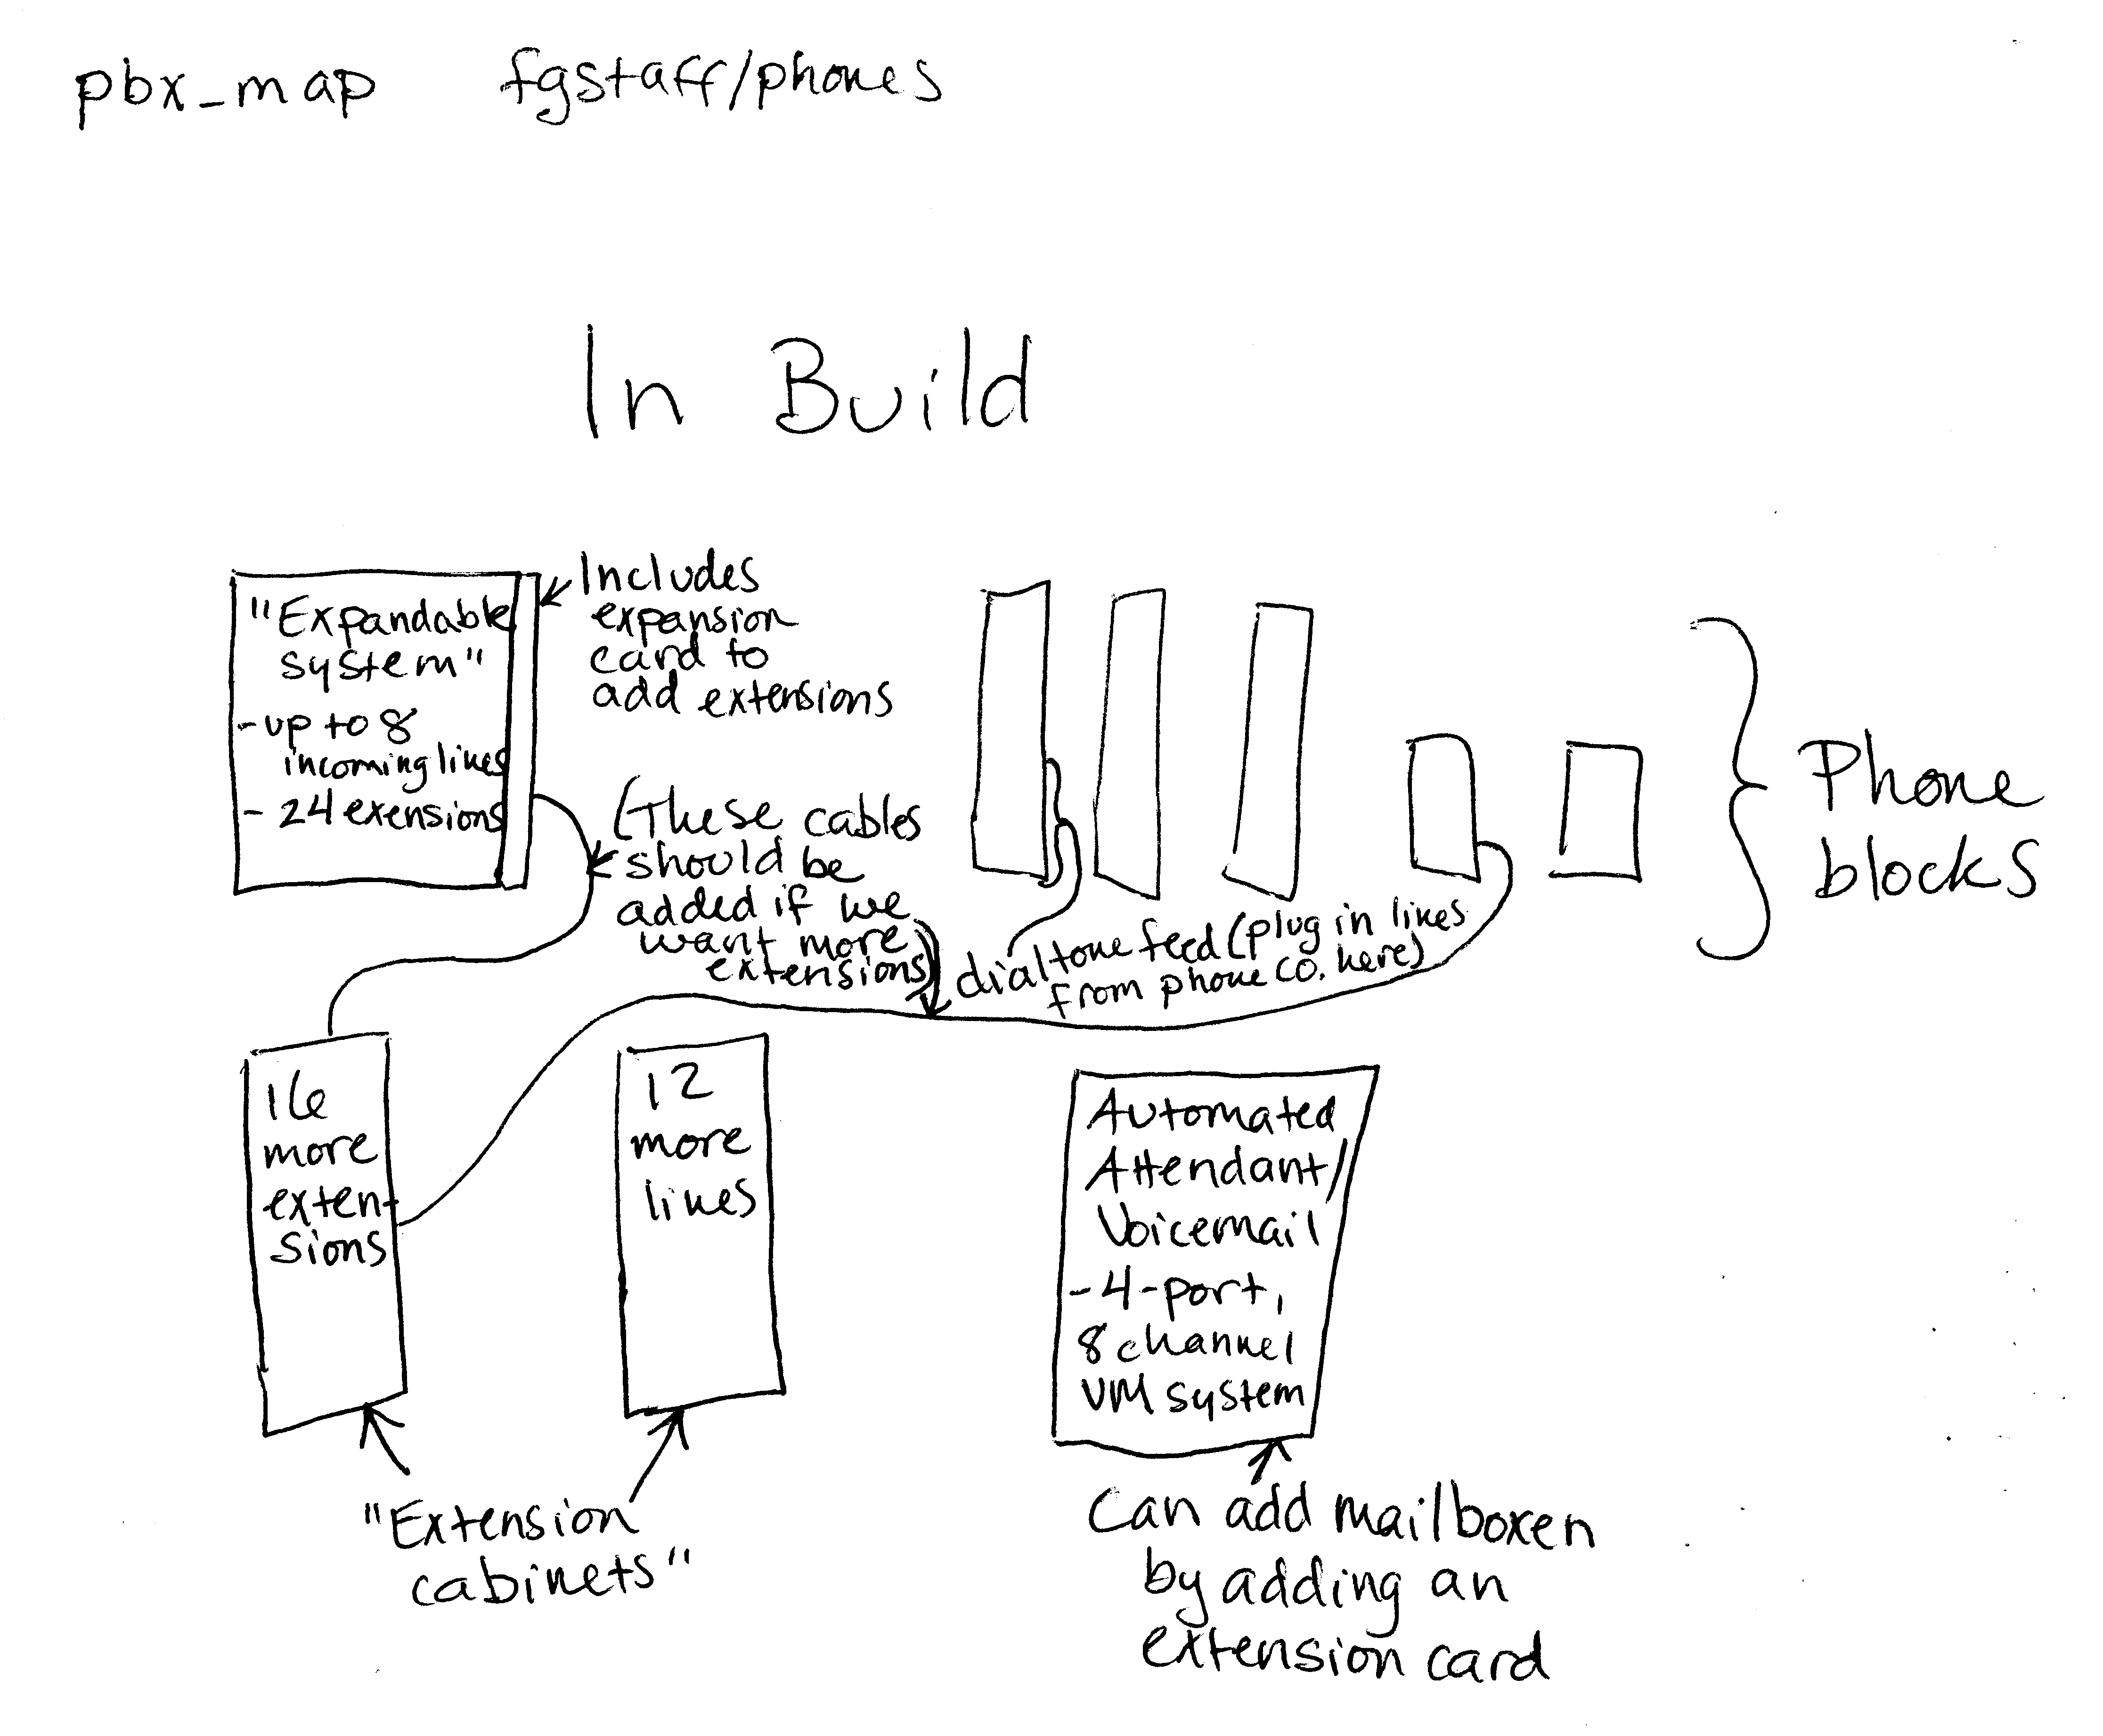 pbx_map fgstaff/phones
In Build
"Expandable
system"
-up to 8
incoming lines
- 24 exensions
Includes
expansion
card to
add extensions
(These cables
should be
added if we
want more
extensions)
dialtone feed (plug in lines
from phone co. here)
Phone
blocks
16
more
exten-
sions
12
more
lines
Automated
Attendant/
Voicemail
-4-port,
8 channel
VM system
"Extension
cabinets"
Can add mailboxen
by adding an
extension card